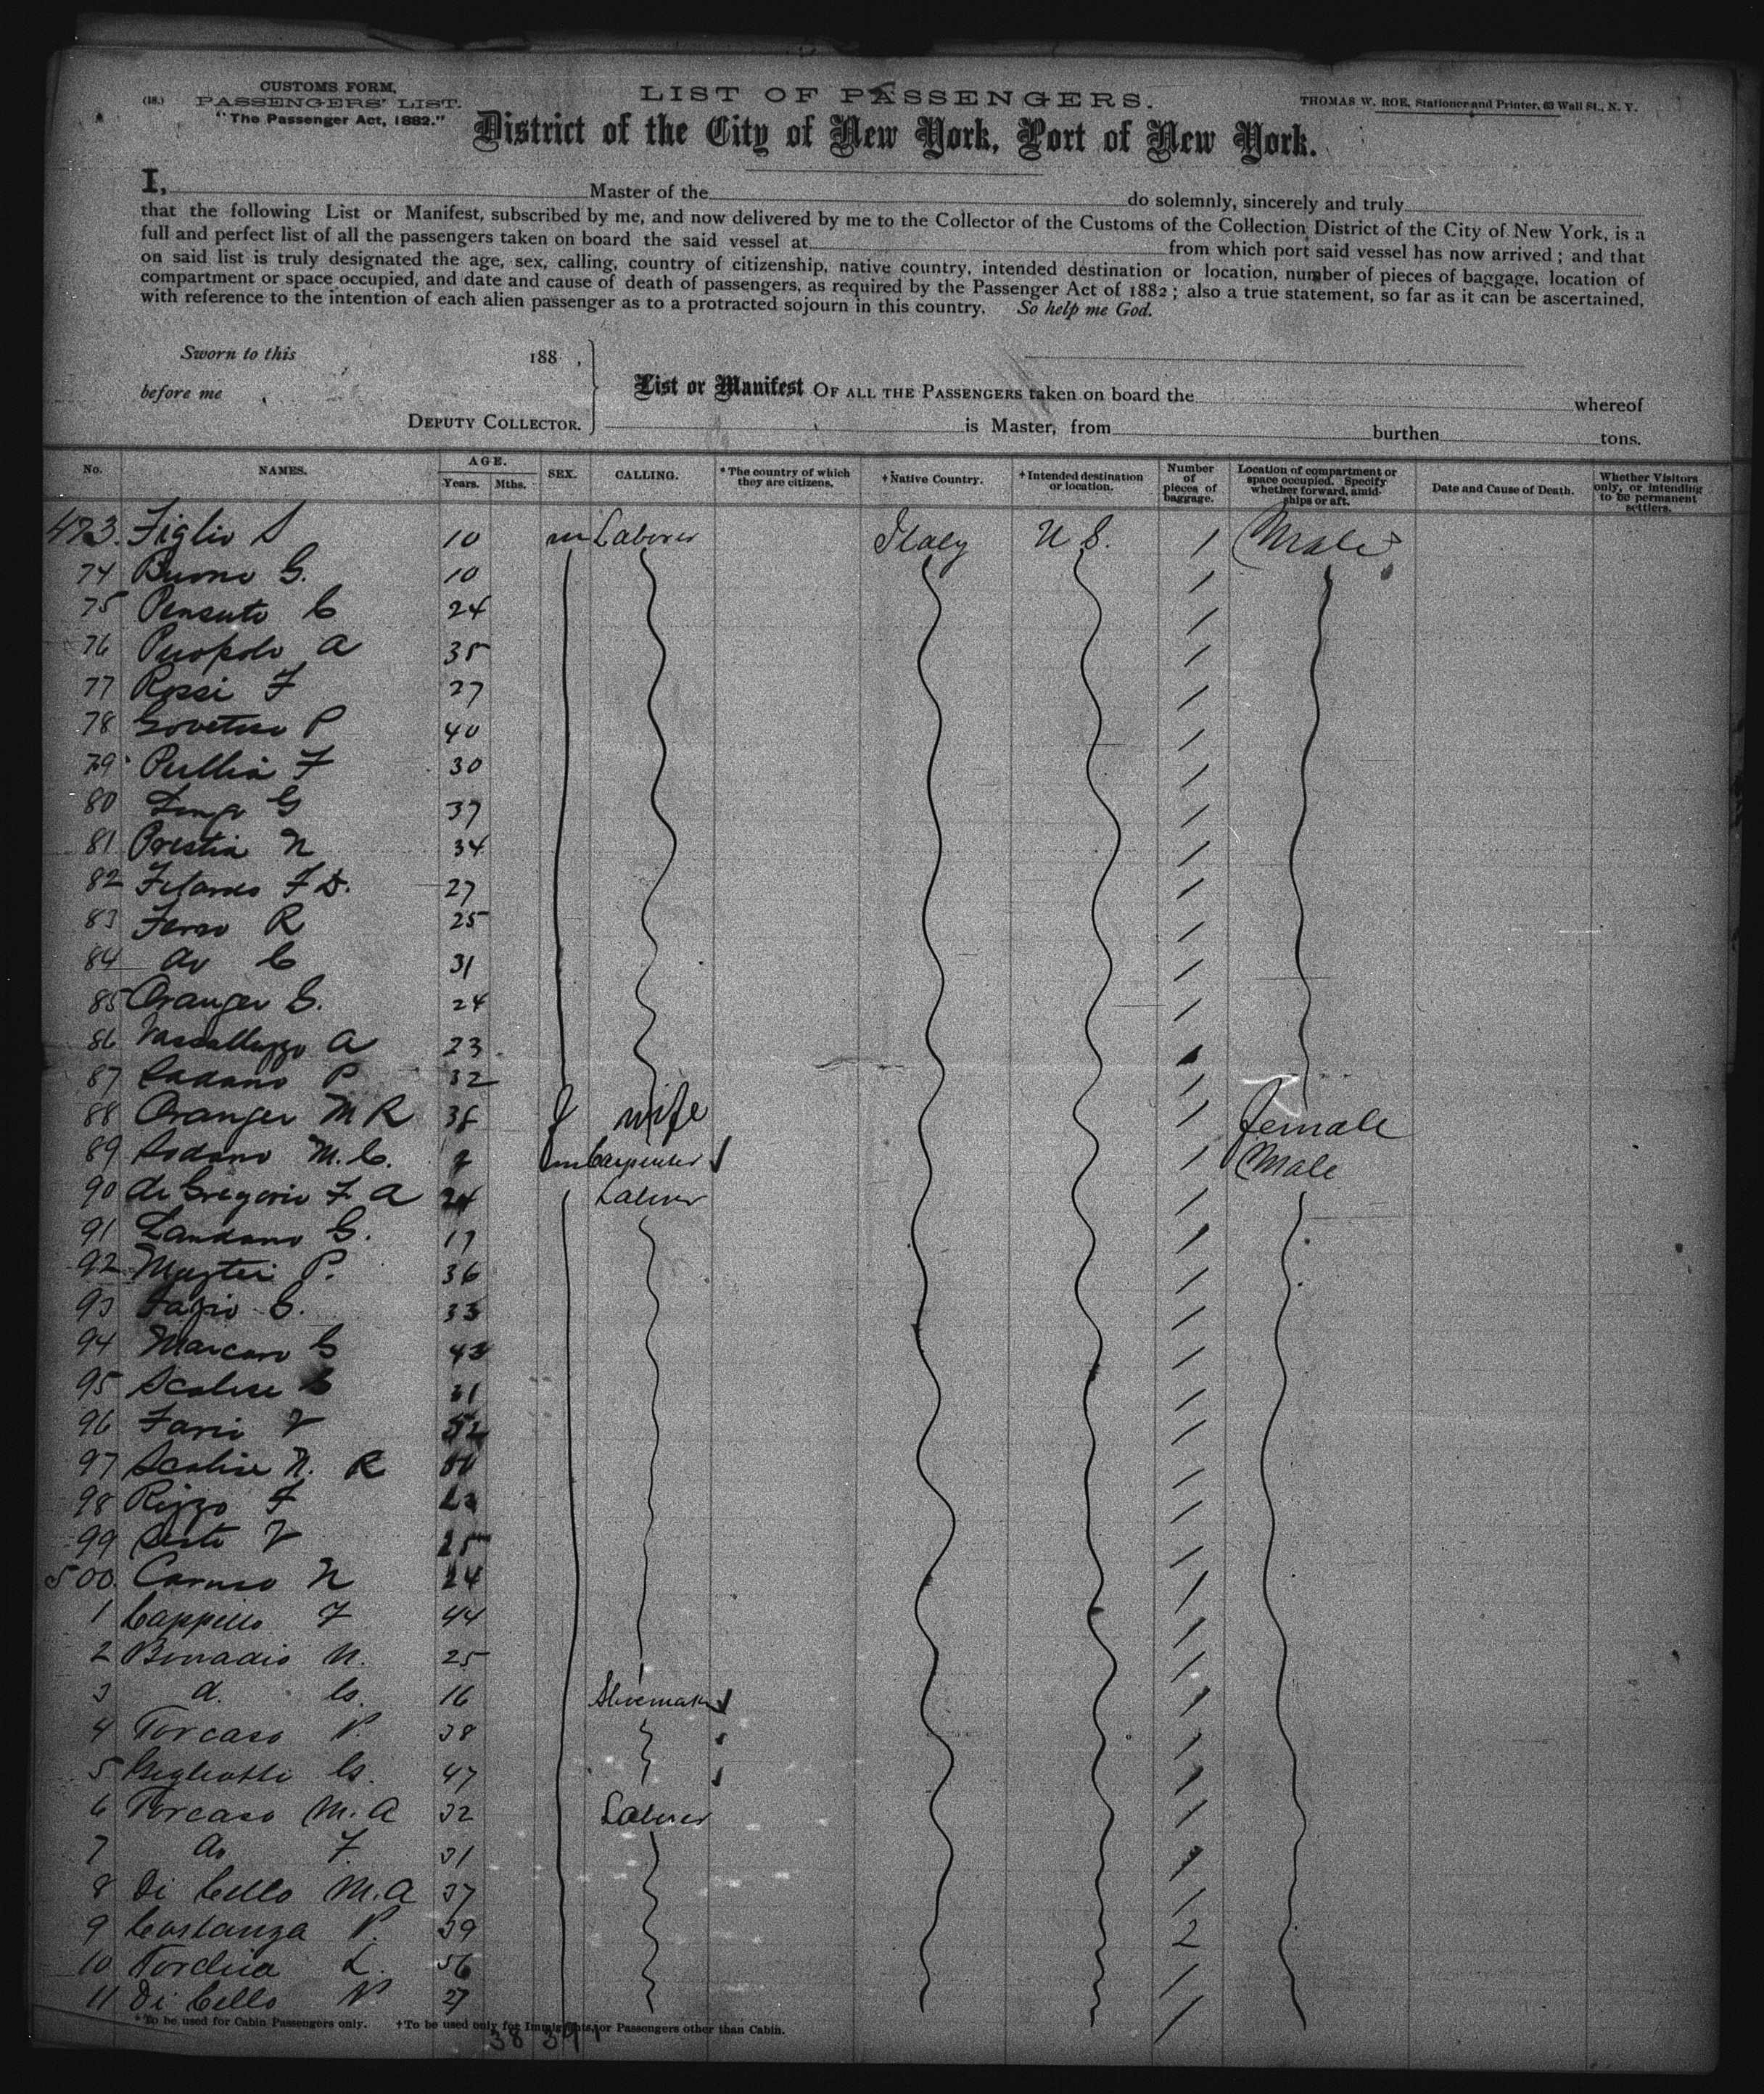 CUSTOMS FORM,
(18.) PASSENGERS' LIST.
"The Passenger Act, 1882."
LIST OF PASSENGERS.
THOMAS W. ROE, Stationer and Printer, 63 Wall St., N. Y.
District of the City of New York, Port of New York.
I, Master of the do solemnly, sincerely and truly
that the following List or Manifest, subscribed by me, and now delivered by me to the Collector of the Customs of the Collection District of the City of New York, is a
full and perfect list of all the passengers taken on board the said vessel at from which port said vessel has now arrived; and that
on said list is truly designated the age, sex, calling, country of citizenship, native country, intended destination or location, number of pieces of baggage, location of
compartment or space occupied, and date and cause of death of passengers, as required by the Passenger Act of 1882; also a true statement, so far as it can be ascertained,
with reference to the intention of each alien passenger as to a protracted sojourn in this country. So help me God.
Sworn to this 188 ,
before me
DEPUTY COLLECTOR.
List or Manifest OF ALL THE PASSENGERS taken on board the whereof
is Master, from burthen tons.
No. NAMES. AGE. Years. Mths. SEX. CALLING. *The country of which they are citizens. †Native Country. †Intended destination or location. Number of pieces of baggage. Location of compartment or space occupied. Specify whether forward, amidships or aft. Date and Cause of Death. Whether Visitors only, or intending to be permanent settlers.
473. Figlio S 10 m Laborer Italy U S. 1 Male
74 Buono G. 10 1
75 Pensuto C 24 1
76 Puopolo A 35 1
77 Rossi F 27 1
78 P 40 1
79 Pullia F 30 1
80 G 37 1
81 Prestia N 34 1
82 F D. 27 1
83 R 25 1
84 do C 31 1
85 Oranger G. 24 1
86 Vassalluzzo A 23 1
87 P 32 1
88 Oranger M R 38 f wife 1 Female
89 Sodano M. C. m Carpenter 1 Male
90 di Gregorio F A 24 Laborer 1
91 Landano G. 17 1
92 P. 36 1
93 Fazio C. 33 1
94 G 43 1
95 Scalise 31 1
96 V 52 1
97 Scalise N. R 1
98 Rizzo F 1
99 V 25 1
500. Caruso N 24 1
1 Cappello F 44 1
2 Bonadio N. 25 1
3 d. G. 16 Shoemaker 1
4 Torcaso P. 38 1
5 Gigliotti G. 47 1
6 Torcaso M. A 32 Laborer 1
7 do F. 31 1
8 Di Cello M. A 37 1
9 Costanza P. 39 2
10 Torchia L. 56 1
11 Di Cello N 27 1
*To be used for Cabin Passengers only. †To be used only for Immigrants, or Passengers other than Cabin.
38 39 1